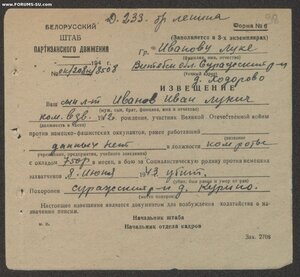 FORUMS-SU.com
Д. 233. бр Ленина
БЕЛОРУССКИЙ
ШТАБ
ПАРТИЗАНСКОГО ДВИЖЕНИЯ
Форма № 6
(Заполняется в 3-х экземплярах)
Гр. Иванову Луке
(фамилия, имя, отчество)
194 г.
№
Витебск обл Суражский р-н
(точный адрес)
д. Ходорово
ИЗВЕЩЕНИЕ
Ваш Иванов Иван Лукич
(фамилия, имя, отчество)
ком. взв. рождения, участник Великой Отечественной войны
против немецко-фашистских оккупантов, ранее работавший
данных нет в должности ком роты
с окладом 750 р. в месяц, в бою за Социалистическую родину против немецких
захватчиков 8 июня 1943 убит.
Похоронен Суражский р-н д. Курино.
Настоящее извещение является документом для возбуждения ходатайства о назначении пенсии.
Начальник штаба
Начальник отдела кадров
М. П.
Зак. 270в